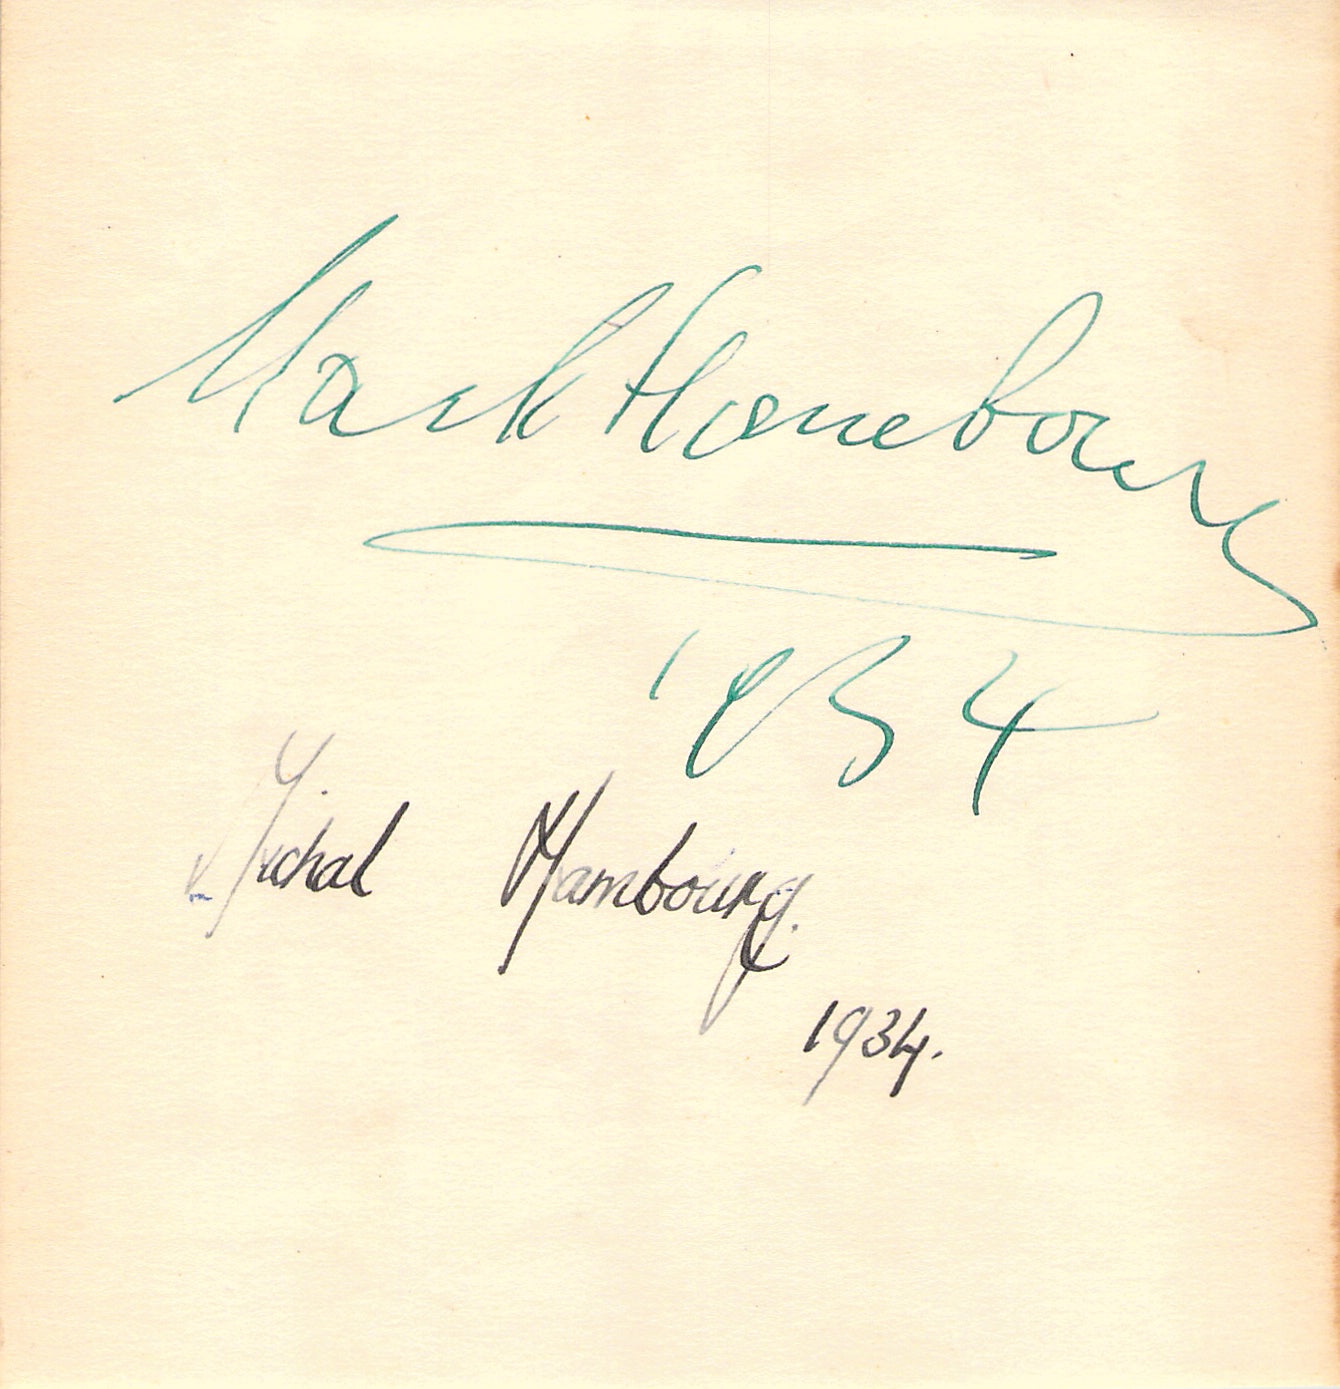 Mark Hambourg
1934
Michal Hambourg.
1934.